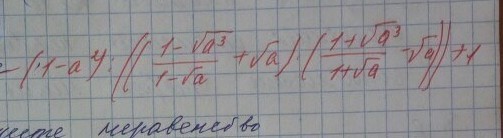 = (1-a²) : ((\frac{1-\sqrt{a^3}}{1-\sqrt{a}} + \sqrt{a}) · (\frac{1+\sqrt{a^3}}{1+\sqrt{a}} - \sqrt{a})) + 1
неравенство